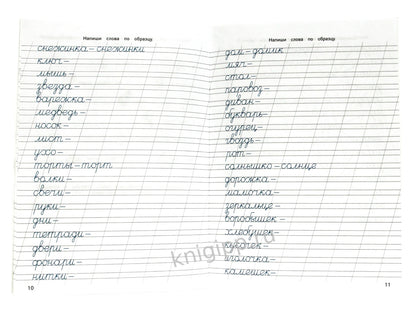 Напиши слова по образцу
снежинка – снежинки
ключ –
мышь –
звезда –
варежка –
медведь –
носок –
лист –
ухо –
торты – торт
волки –
свечи –
руки –
дни –
тетради –
двери –
фонари –
нитки –
10
Напиши слова по образцу
дом – домик
мяч –
стол –
паровоз –
диван –
букварь –
огурец –
гвоздь –
рот –
солнышко – солнце
дорожка –
мамочка –
зеркальце –
воробышек –
хлебушек –
кусочек –
иголочка –
камешек –
11
knigipp.ru